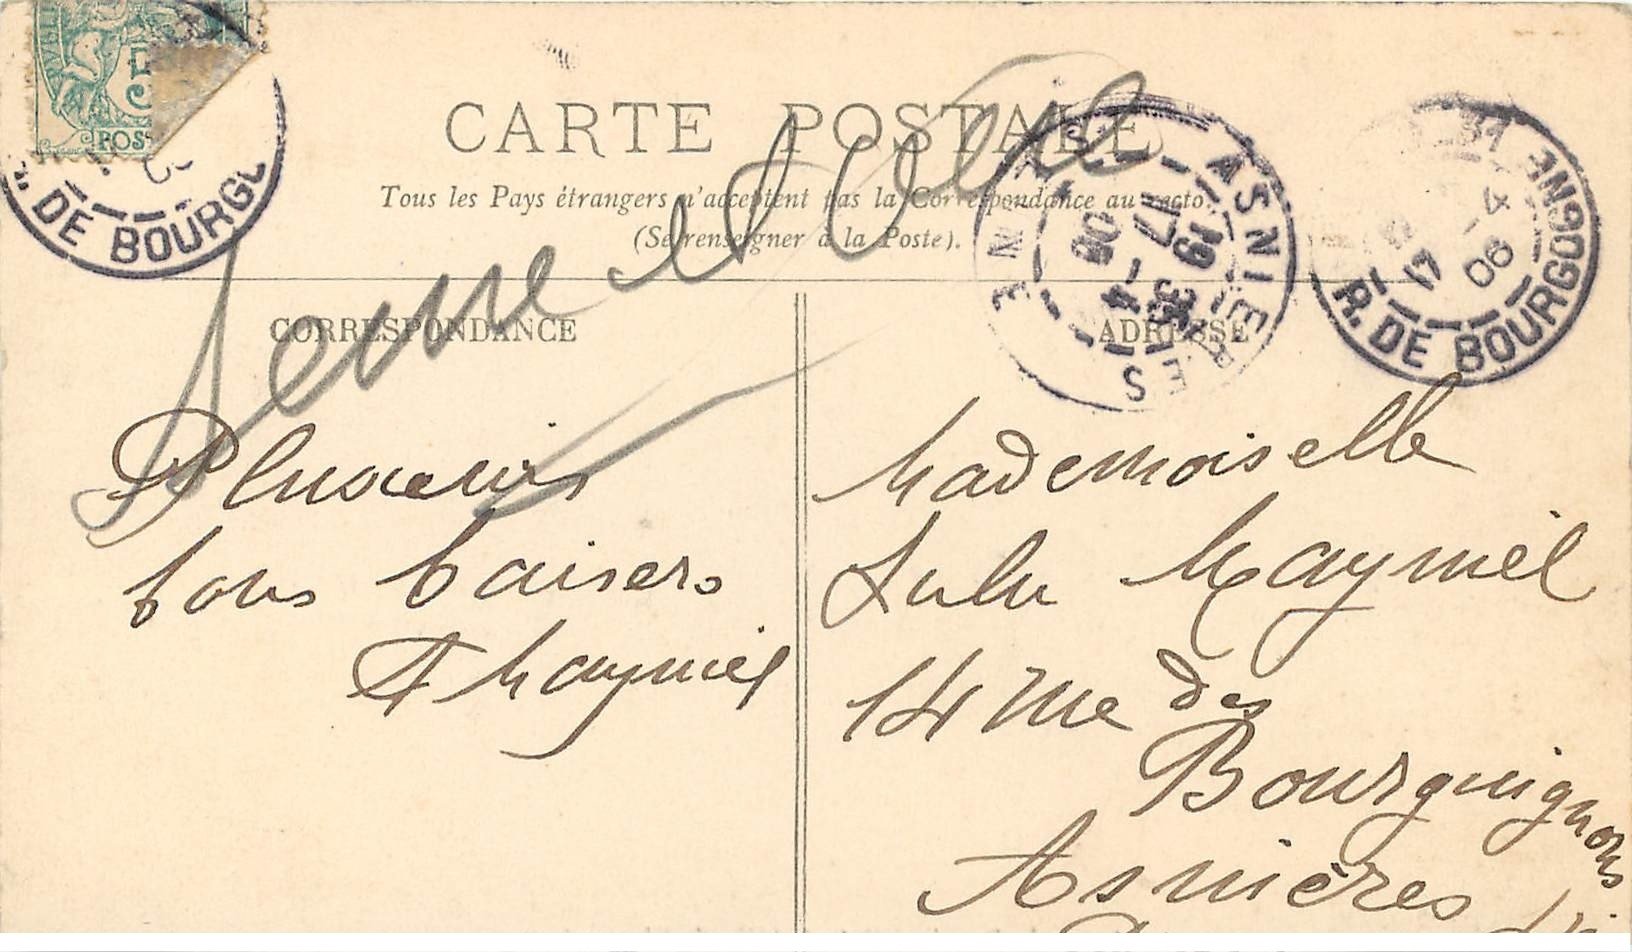 5
POST
R. DE BOURGO
CARTE POSTALE
Tous les Pays étrangers n'acceptent pas la Correspondance au recto.
(Se renseigner à la Poste).
ASNIERES
SEINE
17
19 35
-4
06
R. DE BOURGOGNE
17
-4
06
CORRESPONDANCE
ADRESSE
Plusieurs
bons baisers
Mayniel
Mademoiselle
Lulu Mayniel
14 rue des
Bourguignons
Asnières